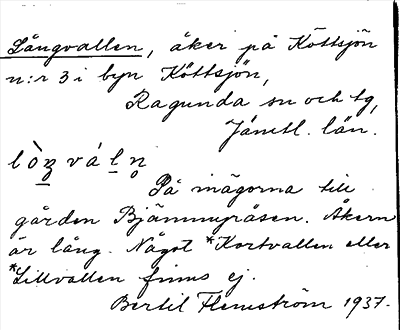 Långvallen, åker på Köttsjön
n:r 3 i byn Köttsjön,
Ragunda sn och tg,
Jämtl. län.
lòŋváln̥
På inägorna till
gården Bjämmyråsen. Åkern
är lång. Något *Kortvallen eller
*Lillvallen finns ej.
Bertil Flemström 1937.